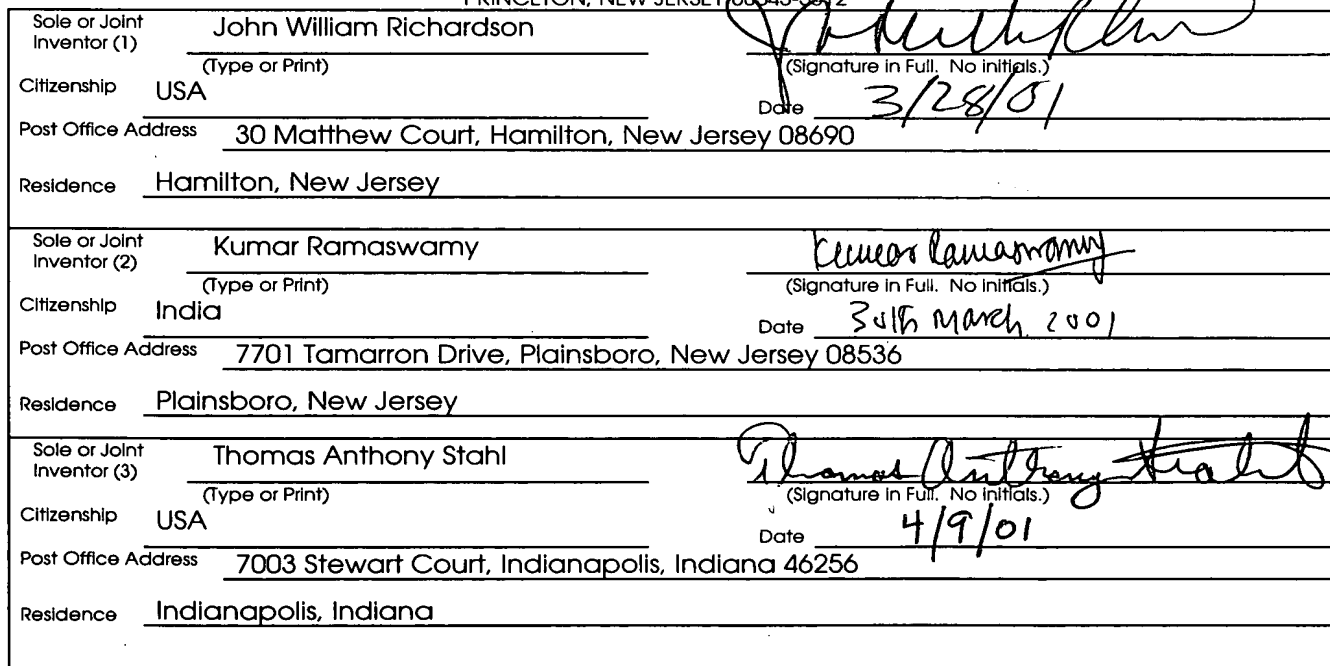 PRINCETON, NEW JERSEY
Sole or Joint Inventor (1) John William Richardson
(Type or Print) (Signature in Full. No initials.)
Citizenship USA Date 3/28/01
Post Office Address 30 Matthew Court, Hamilton, New Jersey 08690
Residence Hamilton, New Jersey
Sole or Joint Inventor (2) Kumar Ramaswamy Kumar Ramaswamy
(Type or Print) (Signature in Full. No initials.)
Citizenship India Date 30th March 2001
Post Office Address 7701 Tamarron Drive, Plainsboro, New Jersey 08536
Residence Plainsboro, New Jersey
Sole or Joint Inventor (3) Thomas Anthony Stahl Thomas Anthony Stahl
(Type or Print) (Signature in Full. No initials.)
Citizenship USA Date 4/9/01
Post Office Address 7003 Stewart Court, Indianapolis, Indiana 46256
Residence Indianapolis, Indiana